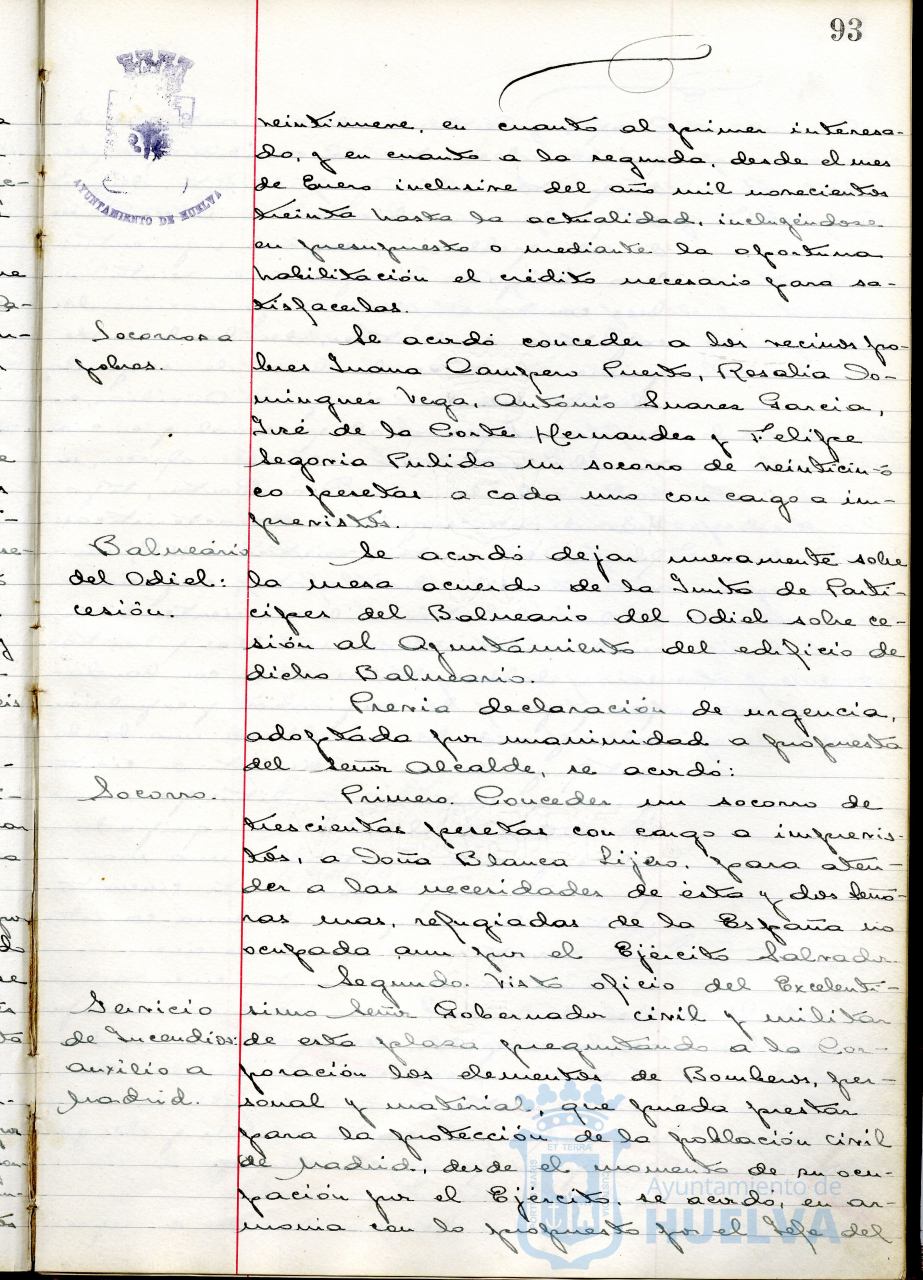 93
AYUNTAMIENTO DE HUELVA
veintinueve, en cuanto al primer interesa-
do, y en cuanto a la segunda, desde el mes
de Enero inclusive del año mil novecientos
treinta hasta la actualidad, incluyéndose
en presupuesto o mediante la oportuna
habilitación el crédito necesario para sa-
tisfacerlas.
Socorros a
pobres.
Se acordó conceder a los vecinos po-
bres Juana Campero Puerto, Rosalia Do-
minguez Vega, Antonio Suarez Garcia,
José de la Corte Hernandez y Felipe
Segovia Pulido un socorro de veinticin-
co pesetas a cada uno con cargo a im-
previstos.
Balneario
del Odiel:
cesión.
Se acordó dejar nuevamente sobre
la mesa acuerdo de la Junta de Parti-
cipes del Balneario del Odiel sobre ce-
sión al Ayuntamiento del edificio de
dicho Balneario.
Previa declaración de urgencia,
adoptada por unanimidad a propuesta
del Señor Alcalde, se acordó:
Socorro.
Primero. Conceder un socorro de
trescientas pesetas con cargo a imprevis-
tos, a Doña Blanca Lijero, para aten-
der a las necesidades de ésta y dos seño-
ras mas, refugiadas de la España no
ocupada aun por el Ejército Salvador.
Servicio
de Incendios:
auxilio a
Madrid.
Segundo. Visto oficio del Excelentí-
simo Señor Gobernador civil y militar
de esta plaza preguntando a la Cor-
poración los elementos de Bomberos, per-
sonal y material, que pueda prestar
para la protección de la población civil
de Madrid, desde el momento de su ocu-
pación por el Ejército, se acordó, en ar-
monia con lo propuesto por el Jefe del
ET TERRA
Ayuntamiento de
HUELVA